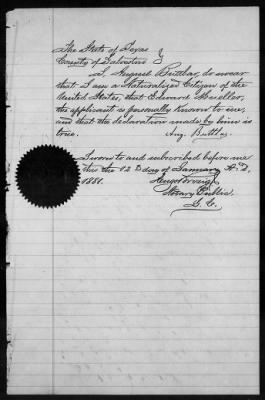 The State of Texas
County of Galveston
I, August Buttlar, do swear
that I am a Naturalized Citizen of the
United States, that Edward Mueller,
the applicant is personally known to me,
and that the declaration made by him is
true.
Aug. Buttlar
Sworn to and subscribed before me
this the 12 D day of January A.D.
1881.
Notary Public
G. C.